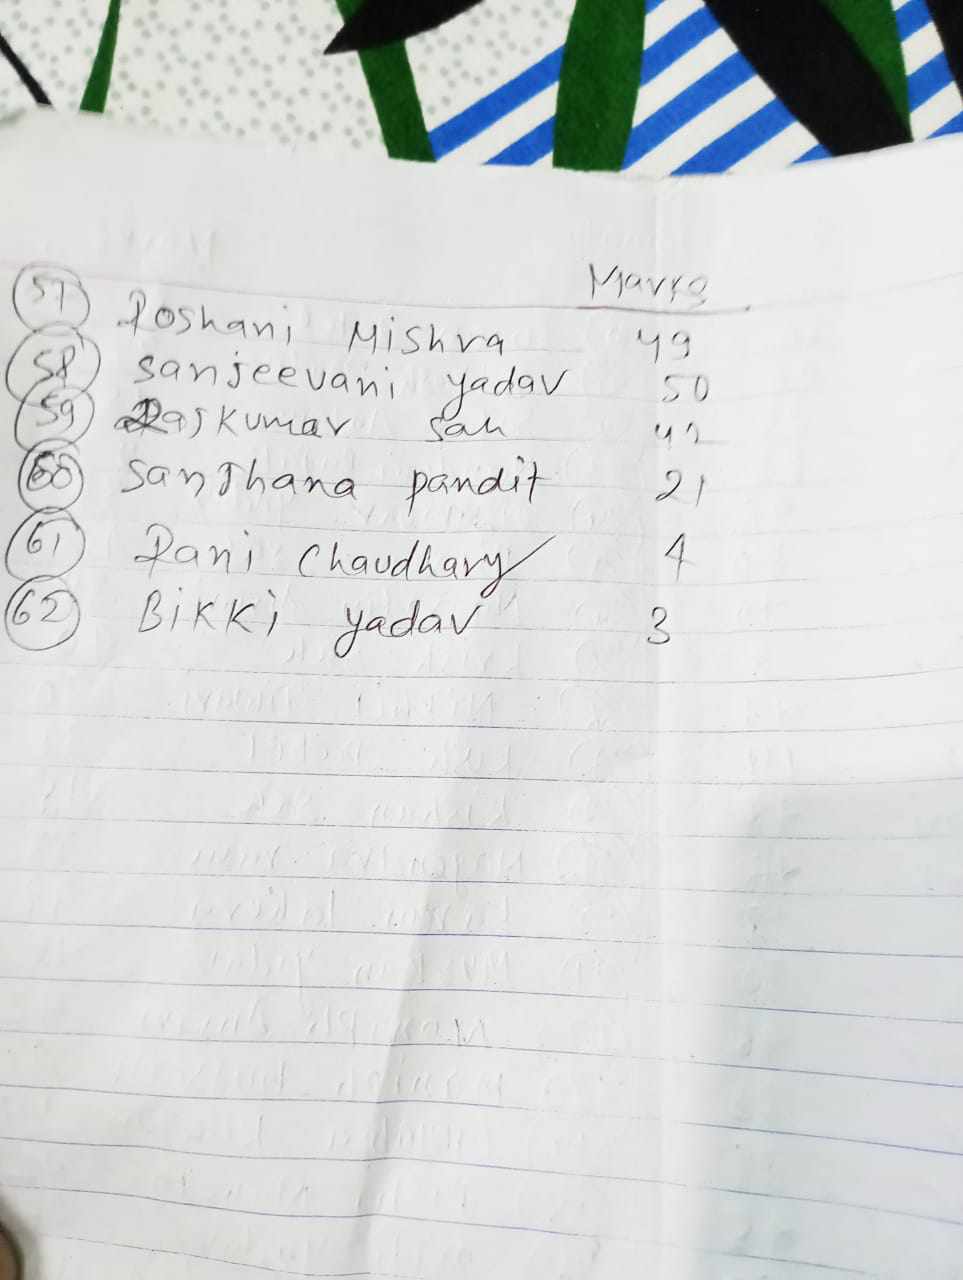 Marks
57 Roshani Mishra 49
58 Sanjeevani yadav 50
59 Rajkumar Sah 42
60 Sanjhana pandit 21
61 Rani Chaudhary 4
62 Bikki yadav 3